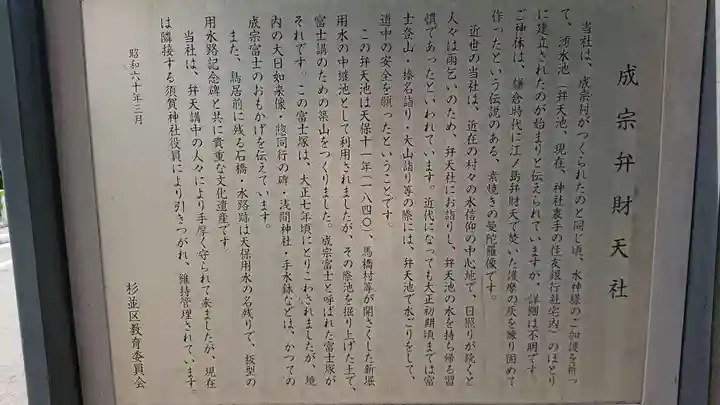 成宗弁財天社
当社は、成宗村がつくられたのと同じ頃、水神様のご加護を祈っ
て、湧水池(弁天池、現在、神社裏手の住友銀行社宅内)のほとり
に建立されたのが始まりと伝えられていますが、詳細は不明です。
ご神体は、鎌倉時代に江ノ島弁財天で焚いた護摩の灰を練り固めて
作ったという伝説のある、素焼きの曼陀羅像です。
近世の当社は、近在の村々の水信仰の中心地で、日照りが続くと
人々は雨乞いのため、弁天社にお詣りし、弁天池の水を持ち帰る習
慣であったといわれています。近代になっても大正初期頃までは富
士登山・榛名詣り・大山詣り等の際には、弁天池で水ごりをして、
道中の安全を願ったということです。
この弁天池は天保十一年(一八四〇)、馬橋村等が開さくした新堀
用水の中継池として利用されましたが、その際池を掘り上げた土で、
富士講のための築山をつくりました。成宗富士と呼ばれた富士塚が
それです。この富士塚は、大正七年頃にとりこわされましたが、境
内の大日如来像・惣同行の碑・浅間神社・手水鉢などは、かつての
成宗富士のおもかげを伝えています。
また、鳥居前に残る石橋・水路跡は天保用水の名残りで、坂型の
用水路記念碑と共に貴重な文化遺産です
当社は、弁天講中の人々により手厚く守られて来ましたが、現在
は隣接する須賀神社役員により引きつがれ、維持管理されています。
昭和六十年三月
杉並区教育委員会